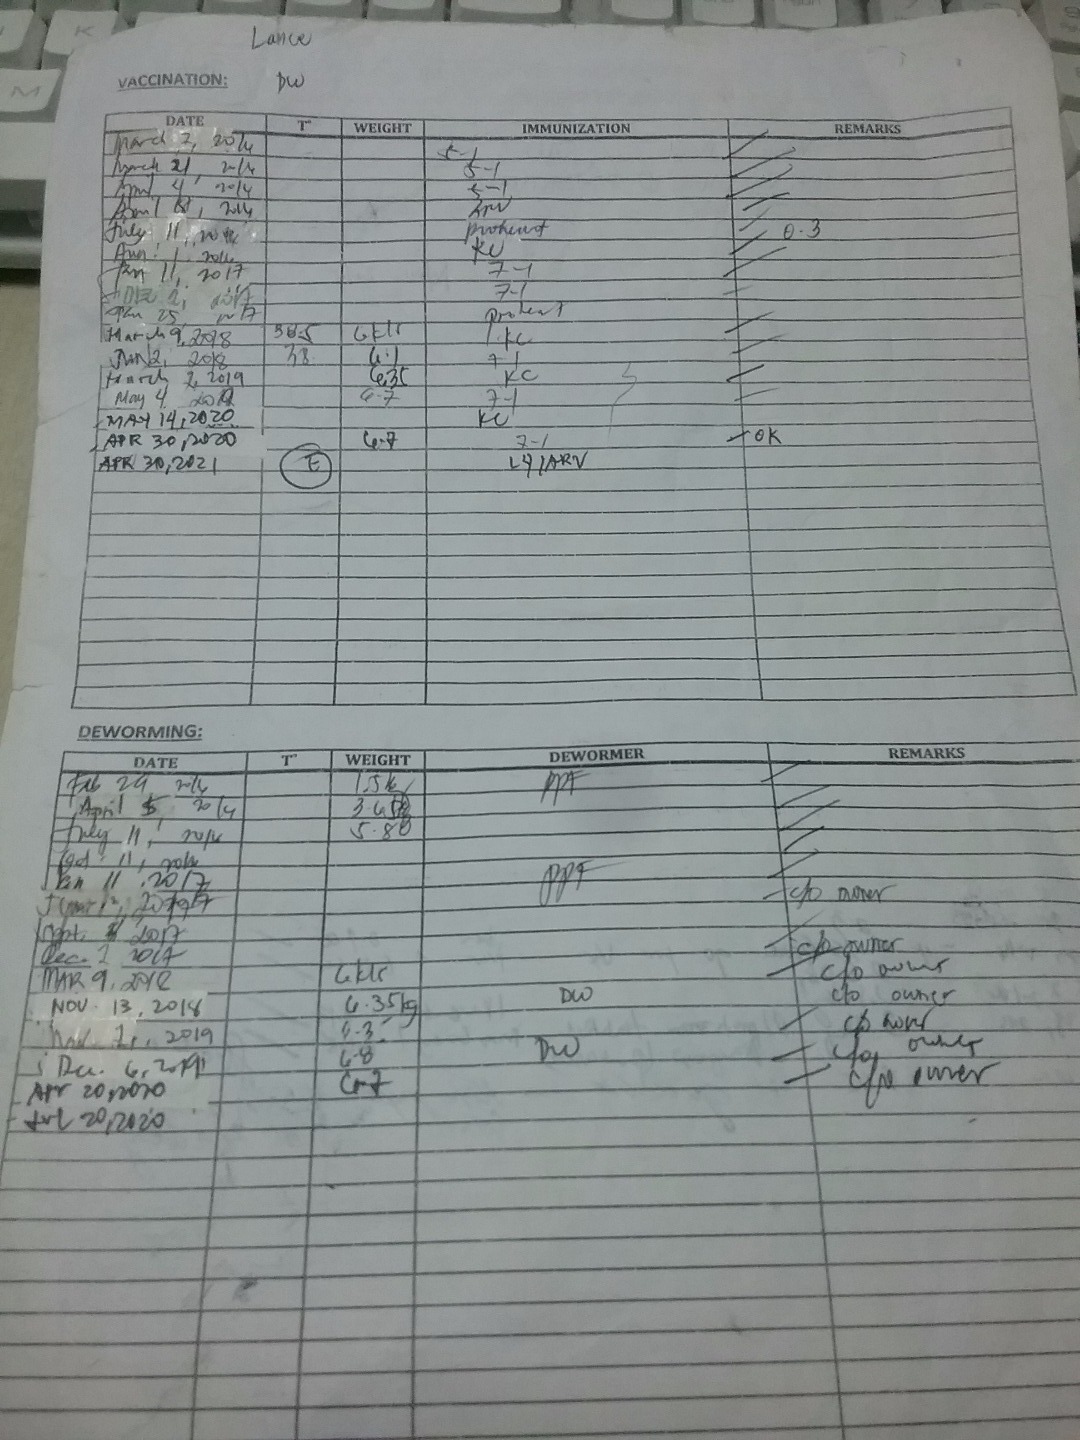 Lance
VACCINATION: DW
DATE T° WEIGHT IMMUNIZATION REMARKS
March 7, 2016 5-1
March 21, 2016 5-1
April 4, 2016 5-1
April 2016
July 11, 2016 proheart 0.3
1, 2016 KC
Jan 11, 2017 7-1
2, 2017 7-1
25, 2017 proheart
March 9, 2018 38.5 6 kls KC
Jun 2, 2018 38 6.1 7-1
March 2, 2019 6.35 KC
May 4 2019 6.7 7-1
MAY 14, 2020 KC
APR 30, 2020 6.7 7-1 OK
APR 30, 2021 E L4/ARV
DEWORMING:
DATE T° WEIGHT DEWORMER REMARKS
Feb 29, 2016 1.5k PPF
April 5, 2016
July 11, 2016 5.8
Oct. 11, 2016
Jan 11, 2017 PPF
c/o owner
Sept 2017
Dec. 2 2017 c/o owner
MAR 9, 2018 6 kls c/o owner
NOV. 13, 2018 6.35kg DW c/o owner
2019 c/o owner
Dec. 6, 2019 6.8 DW c/o owner
Apr 20, 2020 6.7 c/o owner
Jul 20, 2020